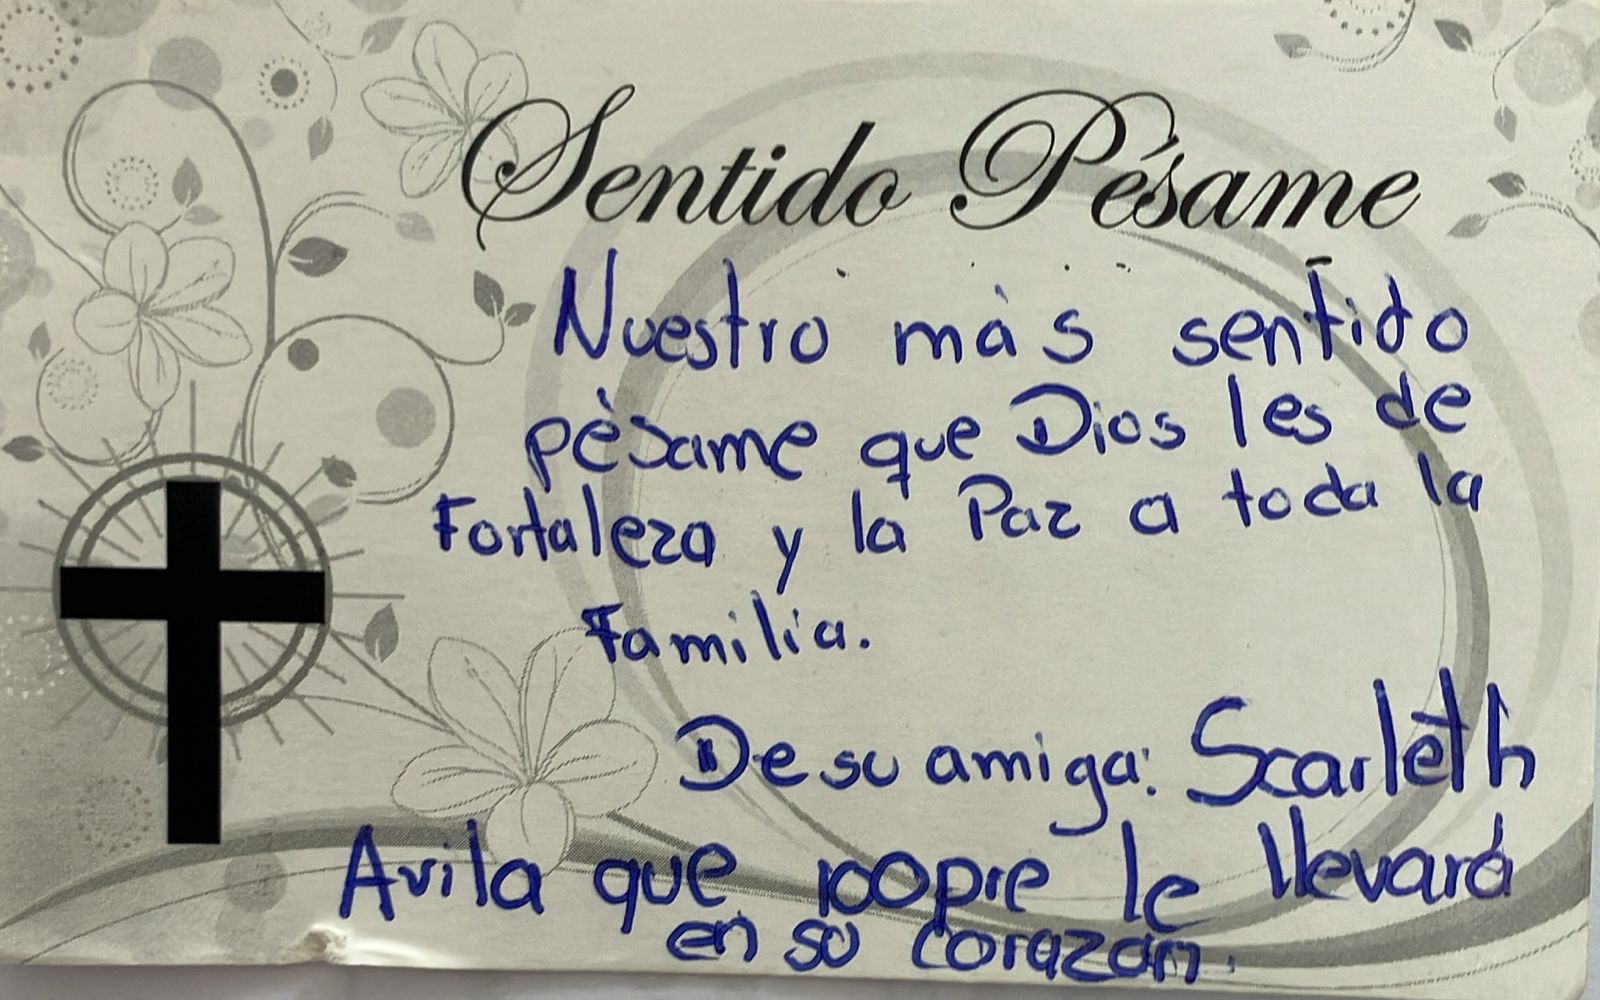 Sentido Pésame
Nuestro más sentido
pésame que Dios les de
Fortaleza y la Paz a toda la
Familia.
De su amiga: Scarleth
Avila que le llevará
en su corazón.